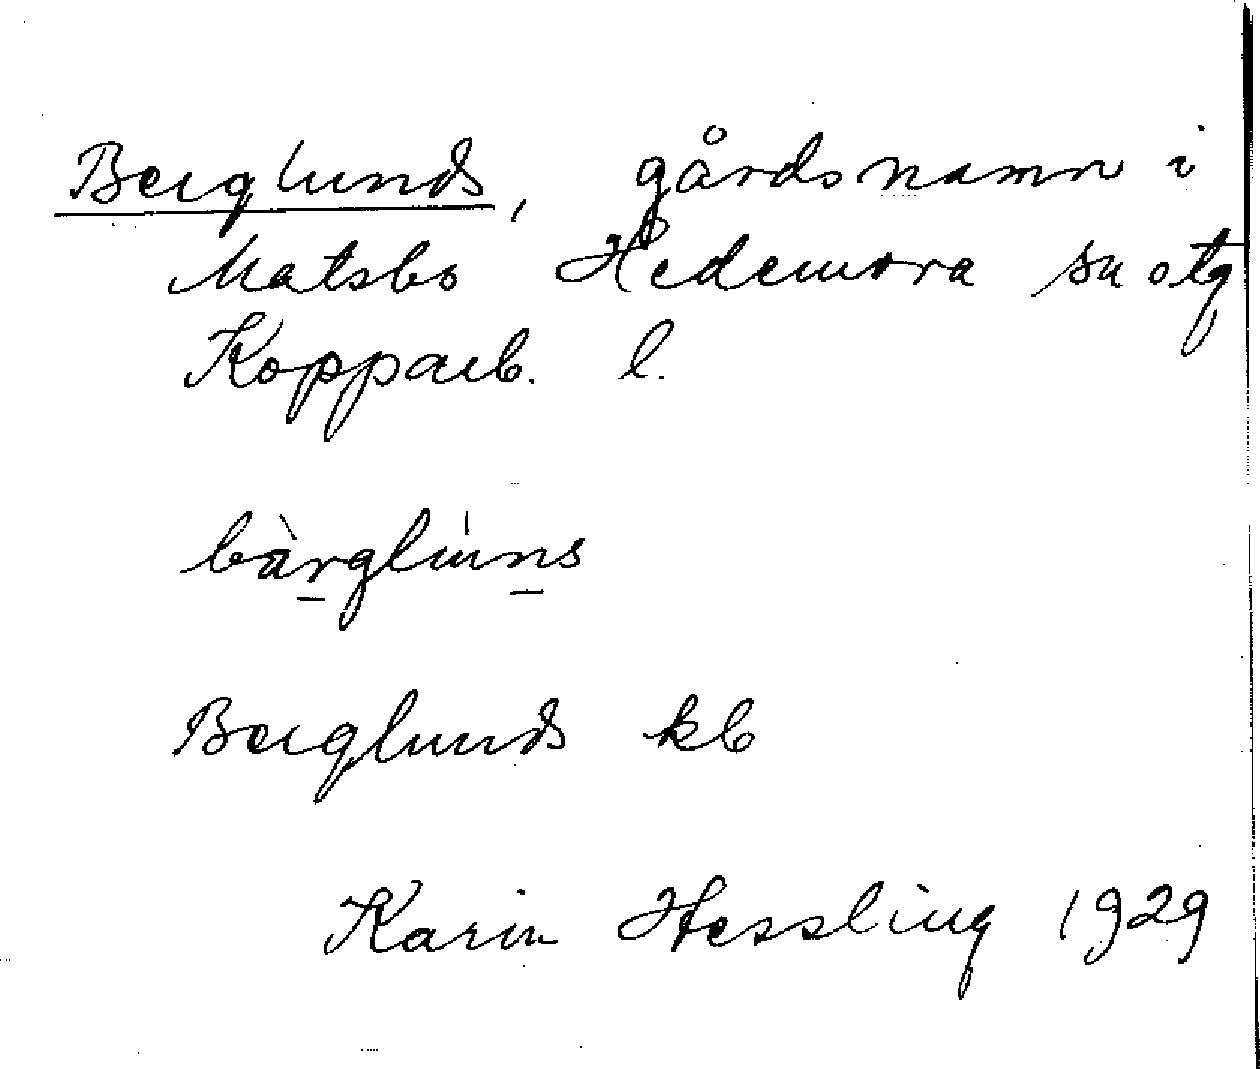 Berglunds, gårdsnamn i
Matsbo Hedemora sn o tg
Kopparb. l.
bàrglúns
Berglunds kb
Karin Hessling 1929